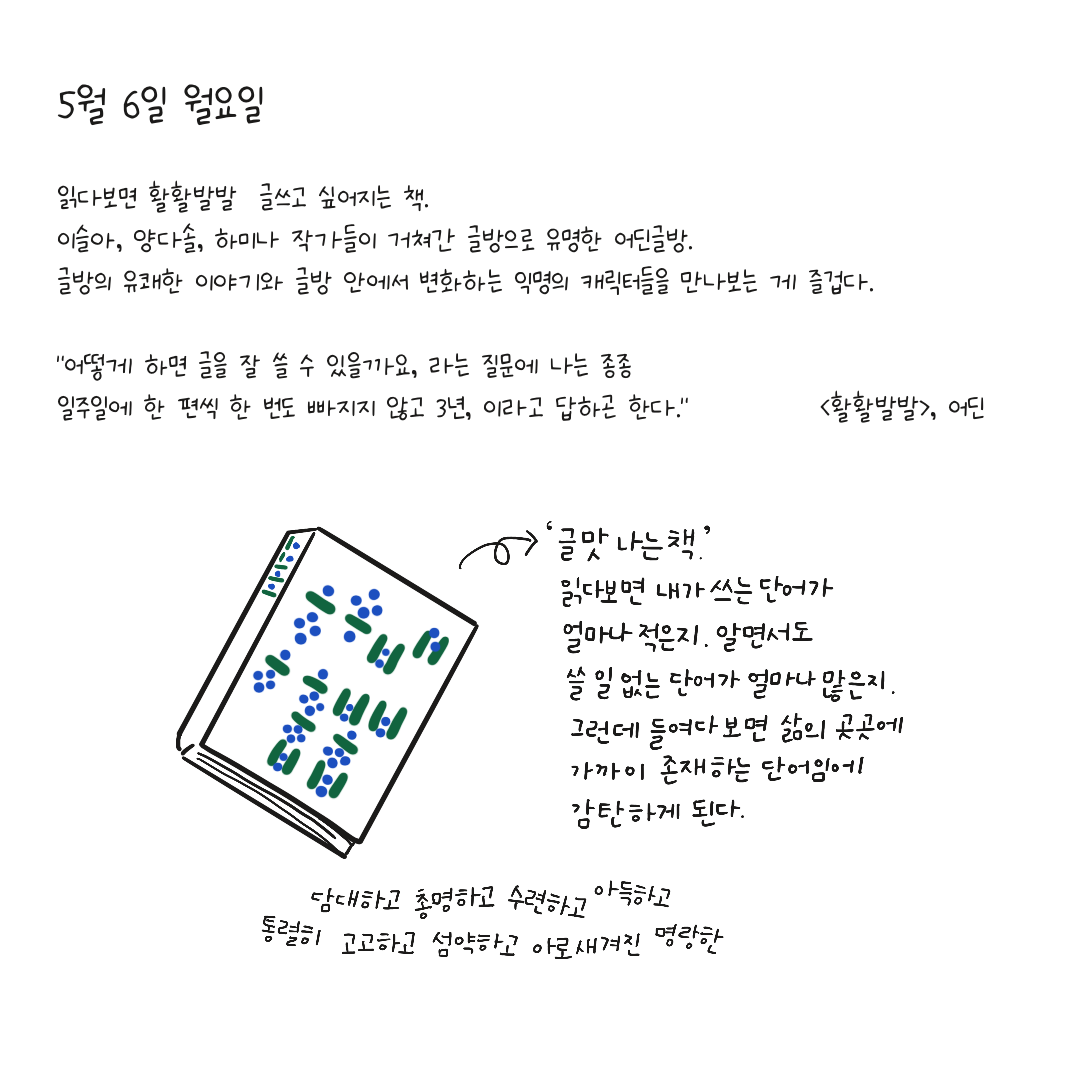 5월 6일 월요일
읽다보면 활활발발 글쓰고 싶어지는 책.
이슬아, 양다솔, 하미나 작가들이 거쳐간 글방으로 유명한 어딘글방.
글방의 유쾌한 이야기와 글방 안에서 변화하는 익명의 캐릭터들을 만나보는 게 즐겁다.
"어떻게 하면 글을 잘 쓸 수 있을까요, 라는 질문에 나는 종종
일주일에 한 편씩 한 번도 빠지지 않고 3년, 이라고 답하곤 한다."
<활활발발>, 어딘
'글맛 나는 책.'
읽다보면 내가 쓰는 단어가
얼마나 적은지. 알면서도
쓸 일 없는 단어가 얼마나 많은지.
그런데 들여다보면 삶의 곳곳에
가까이 존재하는 단어임에!
감탄하게 된다.
담대하고 총명하고 수련하고 아득하고
통렬히 고고하고 섬약하고 아로새겨진 명랑한